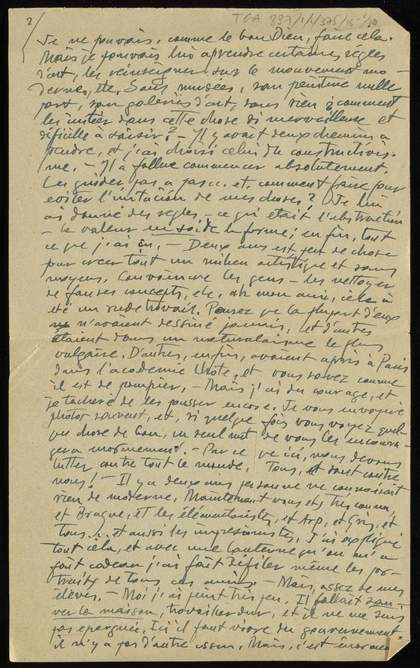 2/ TGA
Je ne pouvais, comme le bon Dieu, faire cela.
Mais je pouvais leur aprendre certaines règles
d'art, les renseigner sur le mouvement mo-
derne, etc. Sans musées, sans peinture nulle
part, sans galeries d'art, sans rien, comment
les initier dans cette chose si merveilleuse et
difficile à saisir? — Il y avait deux chemins à
prendre, et j'ai choisi celui du constructivis-
me. — Il a fallu commencer absolutement.
Les guider pas à pas et, comment faire pour
eviter l'imitation de mes choses? Je leur
ai donné des règles — ce qui était l'abstraction
— la valeur en soi de la forme; en fin, tout
ce que j'ai su. — Deux ans est peu de chose
pour créer tout un milieu artistique et sans
moyens. Convaincre les gens — les nettoyer
de fausses concepts, etc. ah mon ami, cela a
été un rude travail. Pensez que la plupart d'eux
n'avaient dessiné jamais, et d'autres
étaient dans un naturalisme le plus
vulgaire. D'autres, enfin, avaient apris à Paris
dans l'academie Lhote, et vous savez comme
il est de pompier. — Mais j'ai du courage, et
je tacherai de les pousser encore. Je vous envoyerai
photos souvent, et, si quelque fois vous voyez quel-
que chose de bon, un seul mot de vous les encoura-
gera enormement. — Par ce que ici, nous devons
lutter contre tout le monde. Tous, et sont contre
nous! — Il y a deux ans personne ne connaissait
rien de moderne. Maintenant vous êtes très connu,
et Braque, et les élémentaristes, et Arp, et Gris, et
tous... et aussi les impressionistes. J'ai expliqué
tout cela, et avec une lanterne qu'on m'a
fait cadeau j'ai fait défiler même les por-
traits de tous ces amis — Mais, assez de mes
élèves. — Moi j'ai peint très peu. Il fallait sau-
ver la maison, travailler dur, et je ne me suis
pas epargné. Ici il faut vivre du gouvernement,
il n'y a pas d'autre issue. Mais, c'est